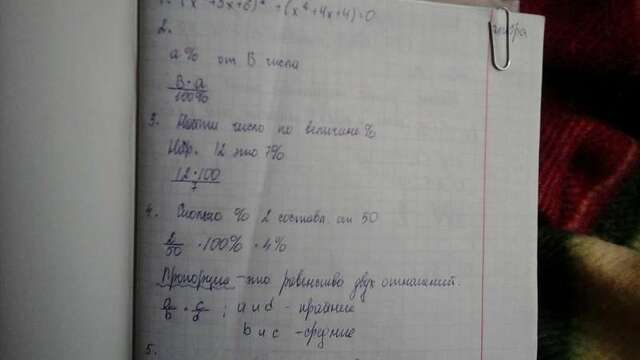 (x² + 5x + 6)² + (x² + 4x + 4) = 0
2.
a% от B числа
B·a / 100%
3. Найти число по величине %
Напр. 12 это 7%
12·100 / 7
4. Сколько % 2 составл. от 50
2/50 · 100% = 4%
Пропорция - это равенство двух отношений.
a/b = c/d ; a и d - крайние
b и c - средние
5.